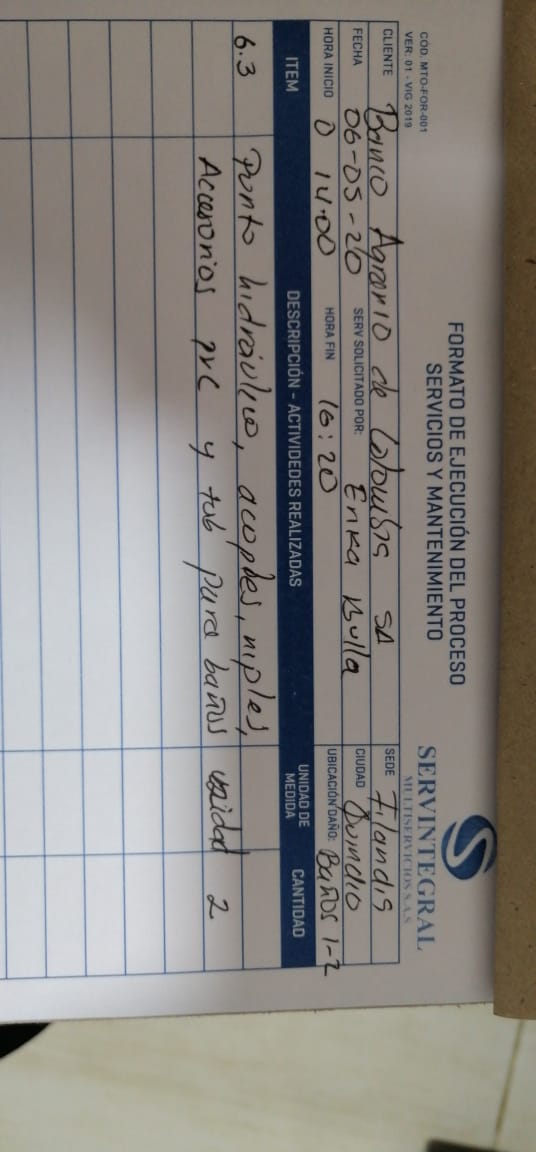 CÓD. MTO-FOR-001
VER. 01 - VIG 2019
FORMATO DE EJECUCIÓN DEL PROCESO
SERVICIOS Y MANTENIMIENTO
SERVINTEGRAL
MULTISERVICIOS S.A.S
CLIENTE Banco Agrario de Colombia SA SEDE Filandia
FECHA 06-05-20 SERV SOLICITADO POR: Erika Bulla CIUDAD Quindio
HORA INICIO 0 14:00 HORA FIN 16:20 UBICACIÓN DAÑO: Baños 1-2
ITEM DESCRIPCIÓN - ACTIVIDEDES REALIZADAS UNIDAD DE MEDIDA CANTIDAD
6.3 Punto hidráulico, acoples, niples,
Accesorios pvc y tub para baños unidad 2